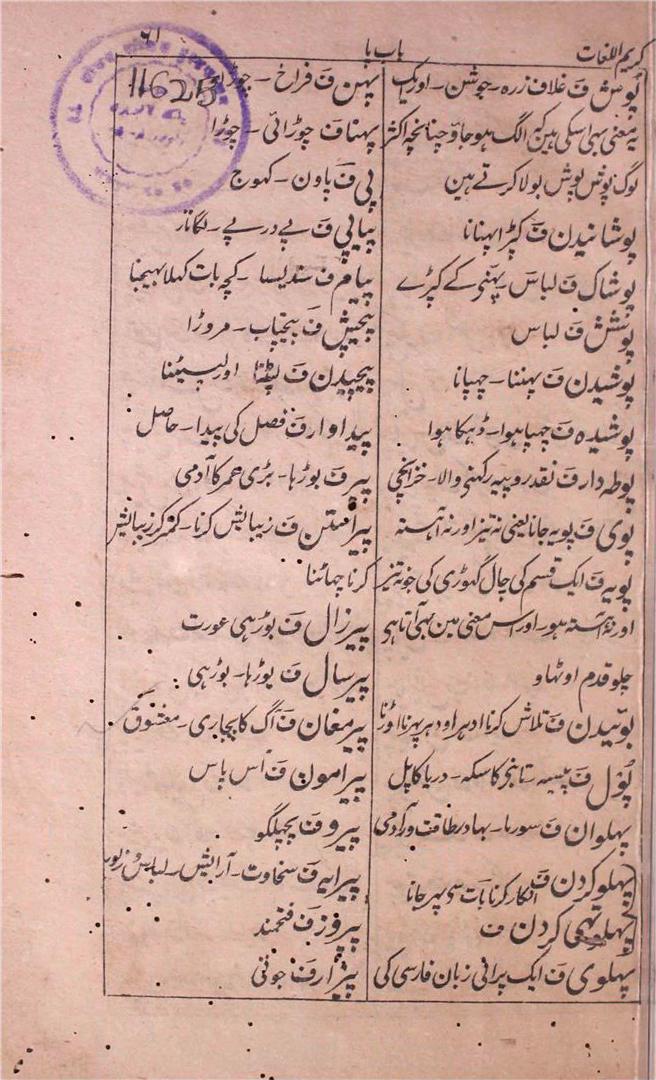 کریم اللغات
باب با
۶۱
11621
پوش ف غلاف زرہ - جوشن - اور ایک
یہ معنی بہی اسکی ہین کہ الگ ہو جاؤ چنانچہ اکثر
لوگ پوش پوش بولا کرتے ہین
پوشانیدن ف کپڑا پہنانا
پوشاک ف لباس پہننی کے کپڑے
پوشش ف لباس
پوشیدن ف پہننا - چہپانا
پوشیدہ ف چہپا ہوا - ڈہکا ہوا
پوطہ دار ف نقد روپیہ رکہنی والا - خزانچی
پوی ف پویہ جانا یعنی نہ تیز اور نہ آہستہ
پویہ ف ایک قسم کی چال گہوڑی کی جو نہ تیز
اور نہ آہستہ ہو - اور اس معنی مین بہی آتا ہی
چلو قدم اوٹہاو
پوئیدن ف تلاش کرنا ادہر اودہر پہرنا اوڑنا
پول ف پیسہ - تانبی کا سکہ - دریا کا پل
پہلوان ف سورما - بہادر طاقت ور آدمی
پہلو کردن ف انکار کرنا بات سی پہر جانا
پہلو تہی کردن ف
پہلوی ف ایک پرانی زبان فارسی کی
پہن ف فراخ - چوڑا
پہنا ف چوڑائی - چوڑا
پی ف پاون - کہوج
پیاپی ف پے درپے - لگاتار
پیام ف سندیسا - کچہ بات کہلا بہیجنا
پیچش ف پیچتاب - مروڑا
پیچیدن ف لپٹنا اور لپیٹنا
پیداوار ف فصل کی پیدا - حاصل
پیر ف بوڑہا - بڑی عمر کا آدمی
پیراستن ف زیبایش کرنا - کم کر زیبایش
کرنا چہانٹنا
پیر زال ف بوڑہی عورت
پیر سال ف بوڑہا - بوڑہی
پیر مغان ف آگ کا پجاری - معشوق
پیرامون ف آس پاس
پیرو ف پچہلگو
پیرایہ ف سخاوت - آرایش - لباس و زیور
پیروز ف فتحمند
پیزار ف جوتی